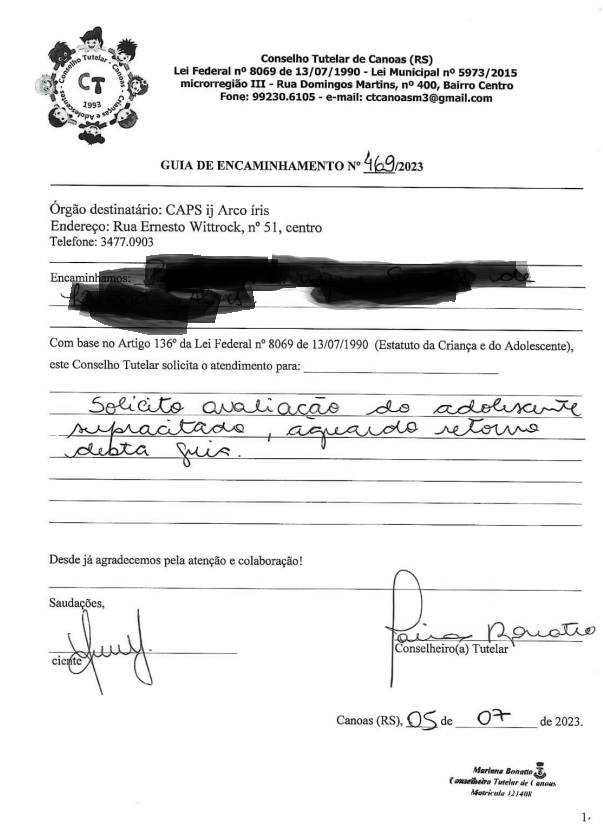 Conselho Tutelar - Canoas - Crianças e Adolescentes -
CT
1993
Conselho Tutelar de Canoas (RS)
Lei Federal nº 8069 de 13/07/1990 - Lei Municipal nº 5973/2015
microrregião III - Rua Domingos Martins, nº 400, Bairro Centro
Fone: 99230.6105 - e-mail: ctcanoasm3@gmail.com
GUIA DE ENCAMINHAMENTO Nº 469/2023
Órgão destinatário: CAPS ij Arco íris
Endereço: Rua Ernesto Wittrock, nº 51, centro
Telefone: 3477.0903
Encaminhamos:
Com base no Artigo 136º da Lei Federal nº 8069 de 13/07/1990 (Estatuto da Criança e do Adolescente),
este Conselho Tutelar solicita o atendimento para:
Solicito avaliação do adolescente
supracitado, aguardo retorno
desta guia.
Desde já agradecemos pela atenção e colaboração!
Saudações,
ciente
Bonatto
Conselheiro(a) Tutelar
Canoas (RS), 05 de 07 de 2023.
Mariana Bonatto
Conselheira Tutelar de Canoas
Matrícula 121408
1.